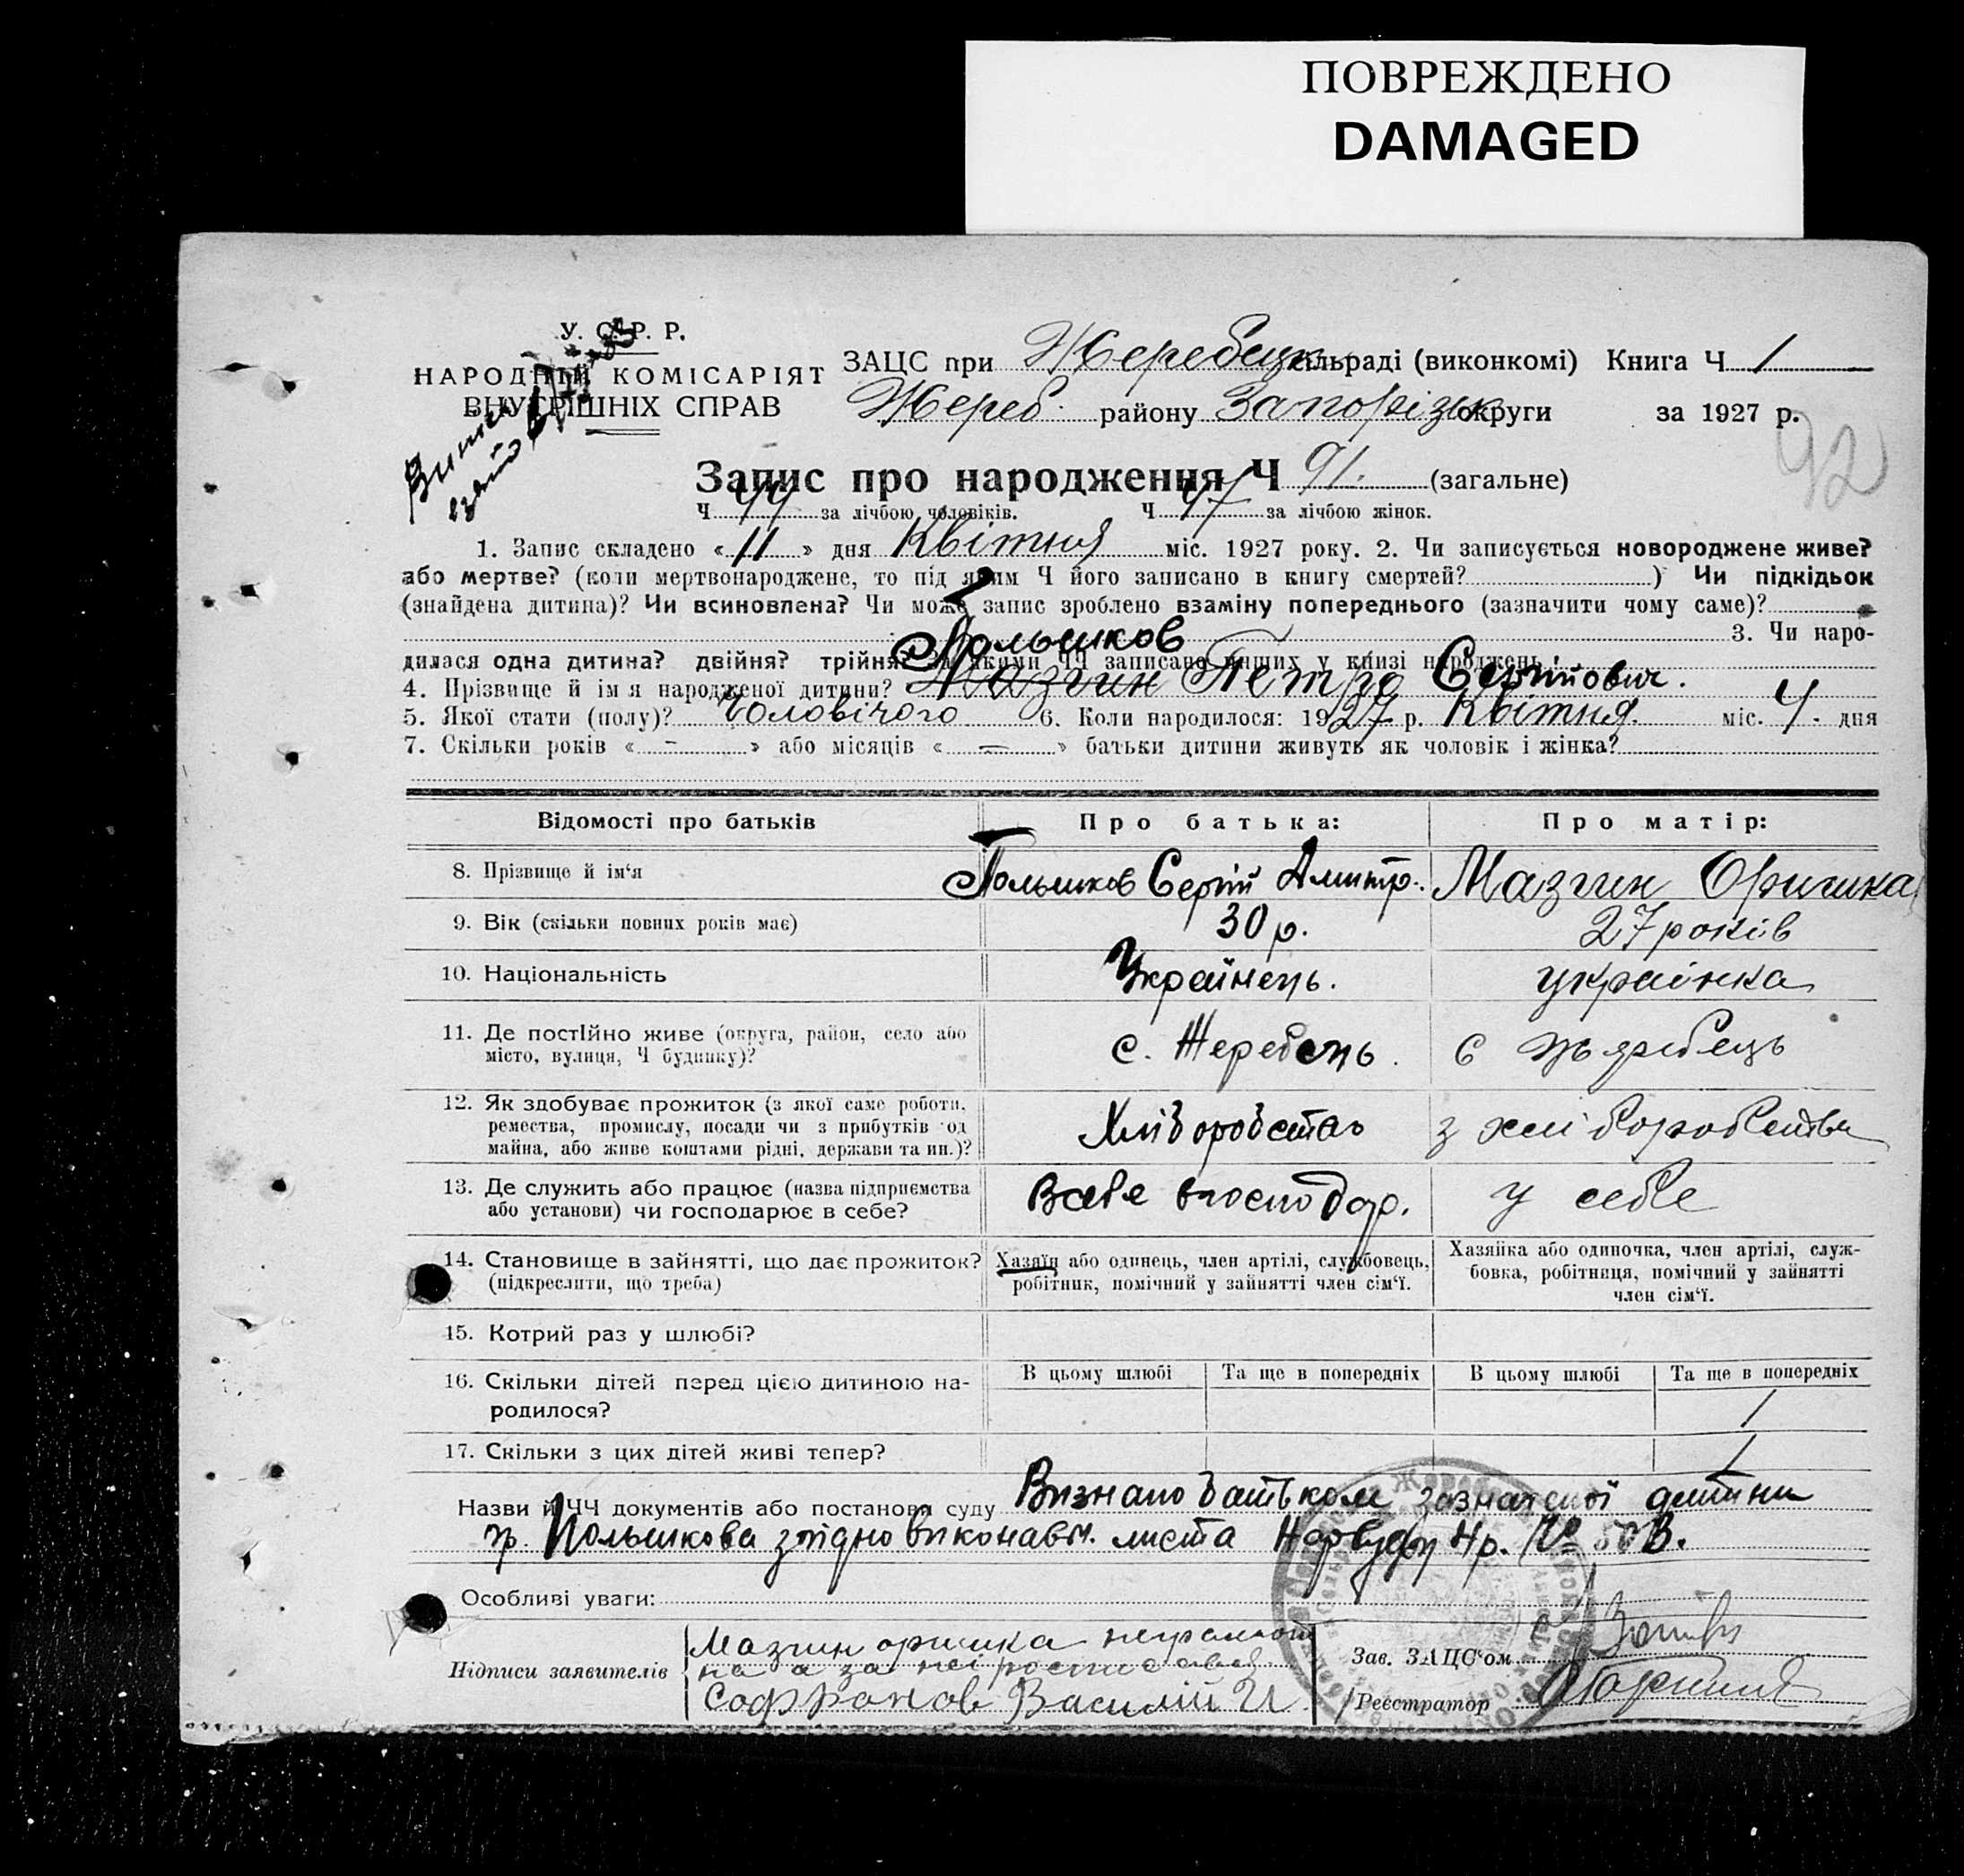 ПОВРЕЖДЕНО
DAMAGED
У. С. Р. Р.
НАРОДНІЙ КОМІСАРІЯТ
ВНУТРІШНІХ СПРАВ
ЗАЦС при Жеребецьк сільраді (виконкомі) Книга Ч 1
Жереб. району Запорізьк округи за 1927 р.
92
Запис про народження Ч 91. (загальне)
Ч 44 за лічбою чоловіків. Ч 47 за лічбою жінок.
1. Запис складено « 11 » дня Квітня міс. 1927 року. 2. Чи записується новороджене живе?
або мертве? (коли мертвонароджене, то під яким Ч його записано в книгу смертей? ) Чи підкідьок
(знайдена дитина)? Чи всиновлена? Чи може запис зроблено взаміну попереднього (зазначити чому саме)?
3. Чи наро-
Польшков
дилася одна дитина? двійня? трійня? за якими ЧЧ записано инших у книзі народжень
4. Прізвище й ім'я народженої дитини? Мазгин Петро Сергійович.
5. Якої стати (полу)? Чоловічого 6. Коли народилося: 1927 р. Квітня. міс. 4. дня
7. Скільки років « - » або місяців « — » батьки дитини живуть як чоловік і жінка?
Відомості про батьків Про батька: Про матір:
8. Прізвище й ім‘я Польшков Сергій Дмитр. Мазгин Оришка
9. Вік (скільки повних років має) 30 р. 27 років
10. Національність Українець. українка
11. Де постІйно живе (округа, район, село або
місто, вулиця, Ч будинку)? с. Жеребець. с жерібець
12. Як здобуває прожиток (з якої саме роботи,
ремества, промислу, посади чи з прибутків од
майна, або живе коштами рідні, держави та ин.)? Хліборобства з хліборобства
13. Де служить або працює (назва підприємства
або установи) чи господарює в себе? В себе в господар. у себе
14. Становище в зайнятті, що дає прожиток?
(підкреслити, що треба)
Хазяїн або одинець, член артілі, службовець,
робітник, помічний у зайнятті член сім‘ї.
Хазяйка або одиночка, член артілі, служ-
бовка, робітниця, помічний у зайнятті
член сім‘ї.
15. Котрий раз у шлюбі?
16. Скільки дітей перед цією дитиною на-
родилося?
В цьому шлюбі Та ще в попередніх В цьому шлюбі Та ще в попередніх
1
17. Скільки з цих дітей живі тепер? 1
Назви й ЧЧ документів або постанова суду Визнано батьком зазначеної дитини
гр. Польшкова згідно виконавч. листа Нарсуду
Особливі уваги:
Підписи заявителів
Мазгин оришка неграмот
на а за неї росписався
Софронов Василій И
Зав. ЗАЦС‘ом
Реєстратор